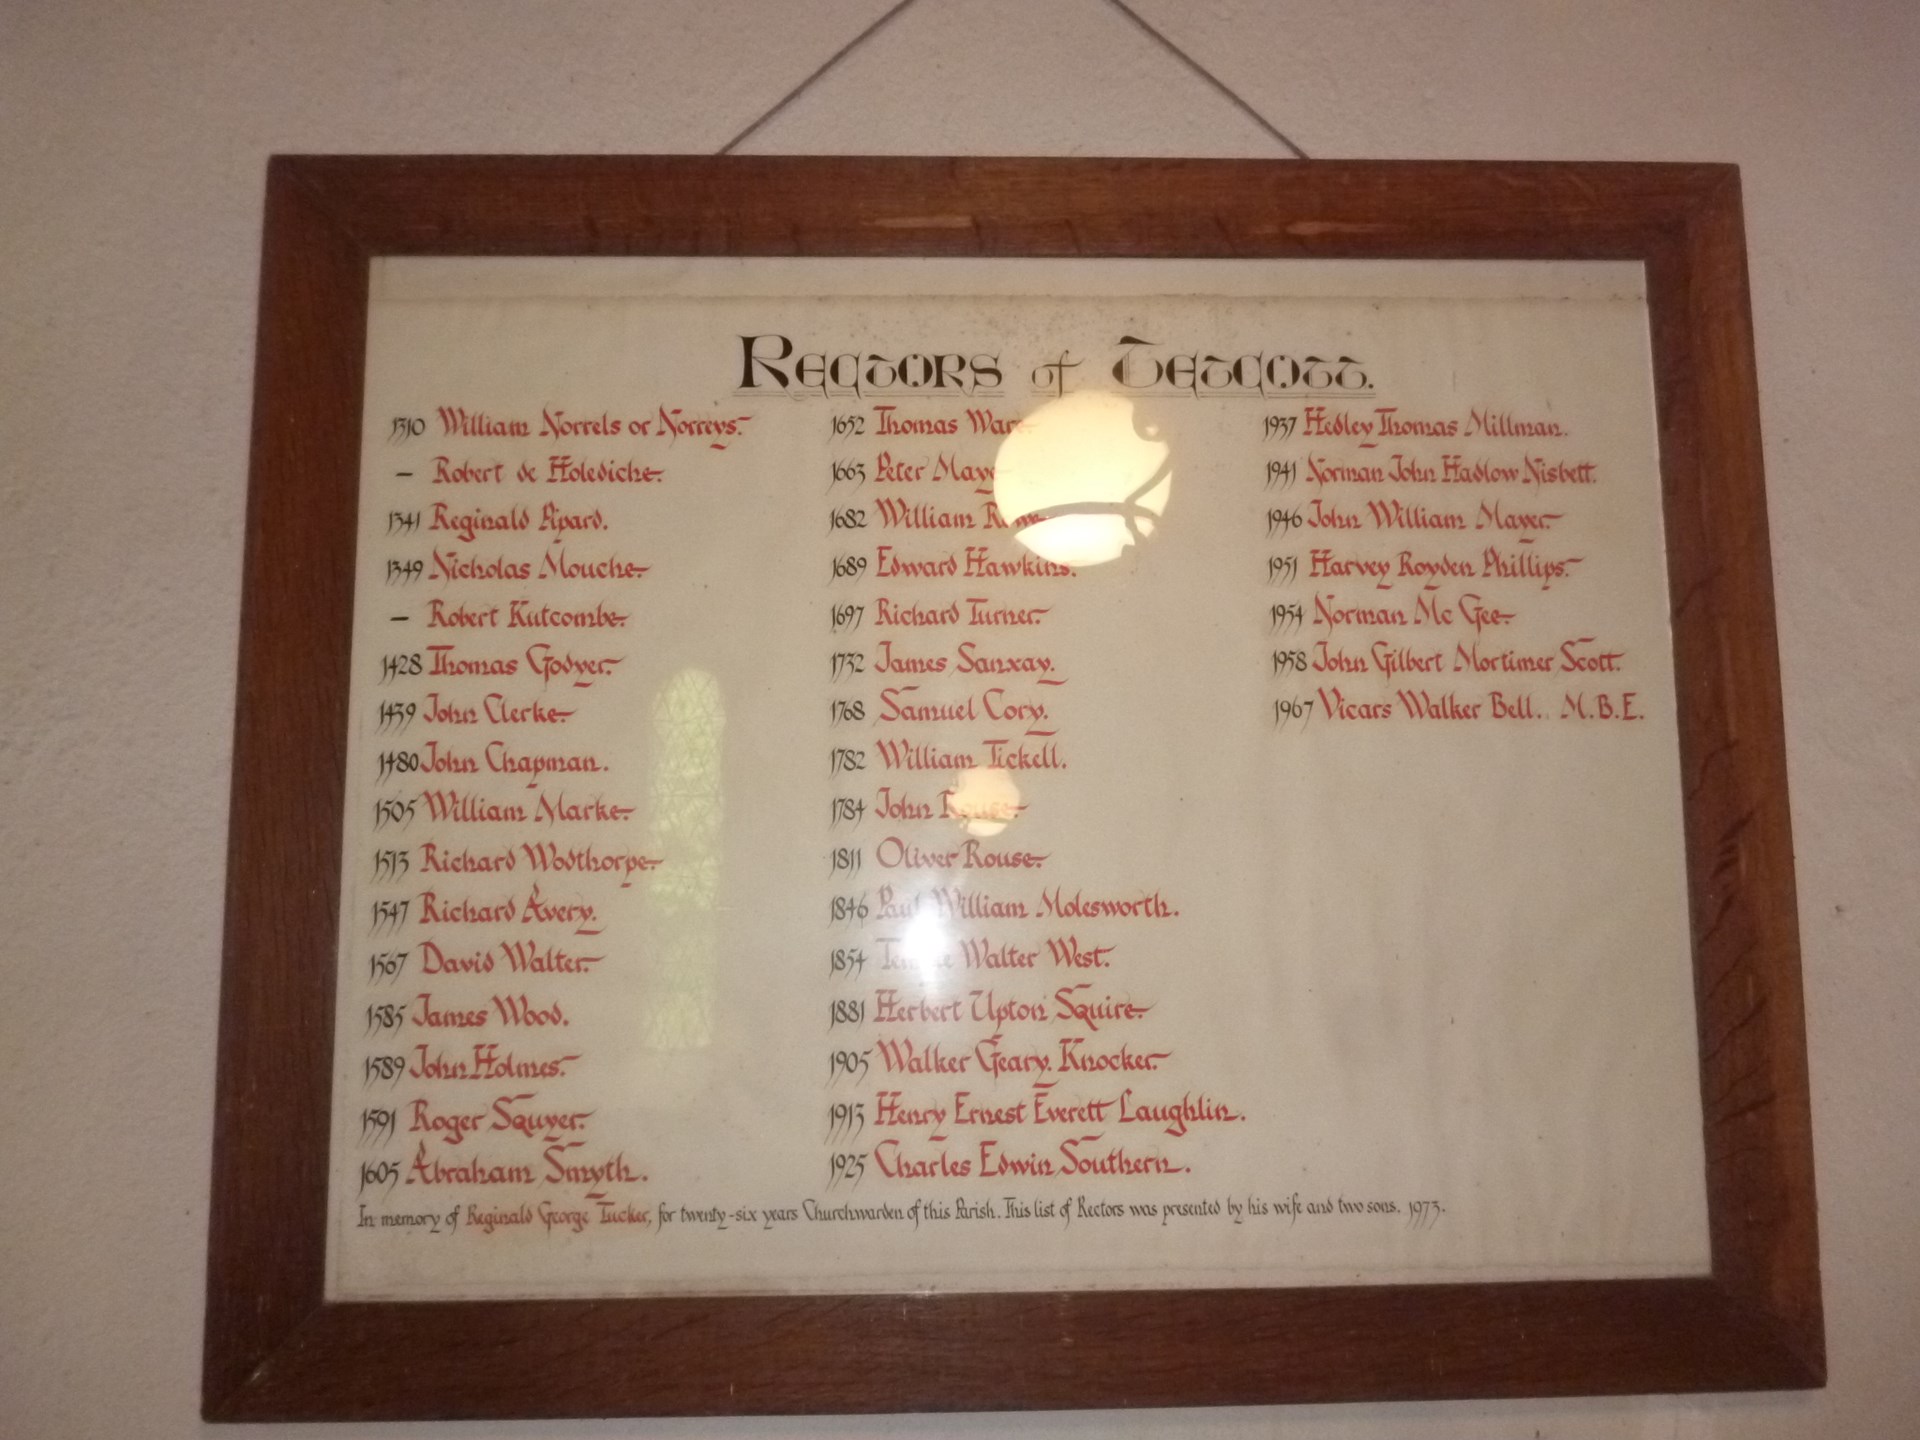 Rectors of Tetcott.
1310 William Norrels or Norreys.
— Robert de Holediche.
1341 Reginald Pipard.
1349 Nicholas Mouche.
— Robert Kutcombe.
1428 Thomas Godyer.
1439 John Clerke.
1480 John Chapman.
1505 William Marke.
1513 Richard Wodthorpe.
1547 Richard Avery.
1567 David Walter.
1585 James Wood.
1589 John Holmes.
1591 Roger Squyer.
1605 Abraham Smyth.
1652 Thomas
1663 Peter
1682 William
1689 Edward Hawkins.
1697 Richard Turner.
1732 James Sanxay.
1768 Samuel Cory.
1782 William Tickell.
1784 John Rouse.
1811 Oliver Rouse.
1846 Paul William Molesworth.
1854 Walter West.
1881 Herbert Upton Squire.
1905 Walker Geary. Knocker.
1913 Henry Ernest Everett Laughlin.
1925 Charles Edwin Southern.
1937 Hedley Thomas Millman.
1941 Norman John Hadlow Nisbett.
1946 John William Mayer.
1951 Harvey Royden Phillips.
1954 Norman Mc Gee.
1958 John Gilbert Mortimer Scott.
1967 Vicars Walker Bell. M.B.E.
In memory of Reginald George Tucker, for twenty-six years Churchwarden of this Parish. This list of Rectors was presented by his wife and two sons. 1973.